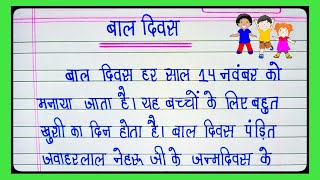 बाल दिवस
बाल दिवस हर साल 14 नवंबर को
मनाया जाता है। यह बच्चों के लिए बहुत
खुशी का दिन होता है। बाल दिवस पंडित
जवाहरलाल नेहरू जी के जन्मदिवस के